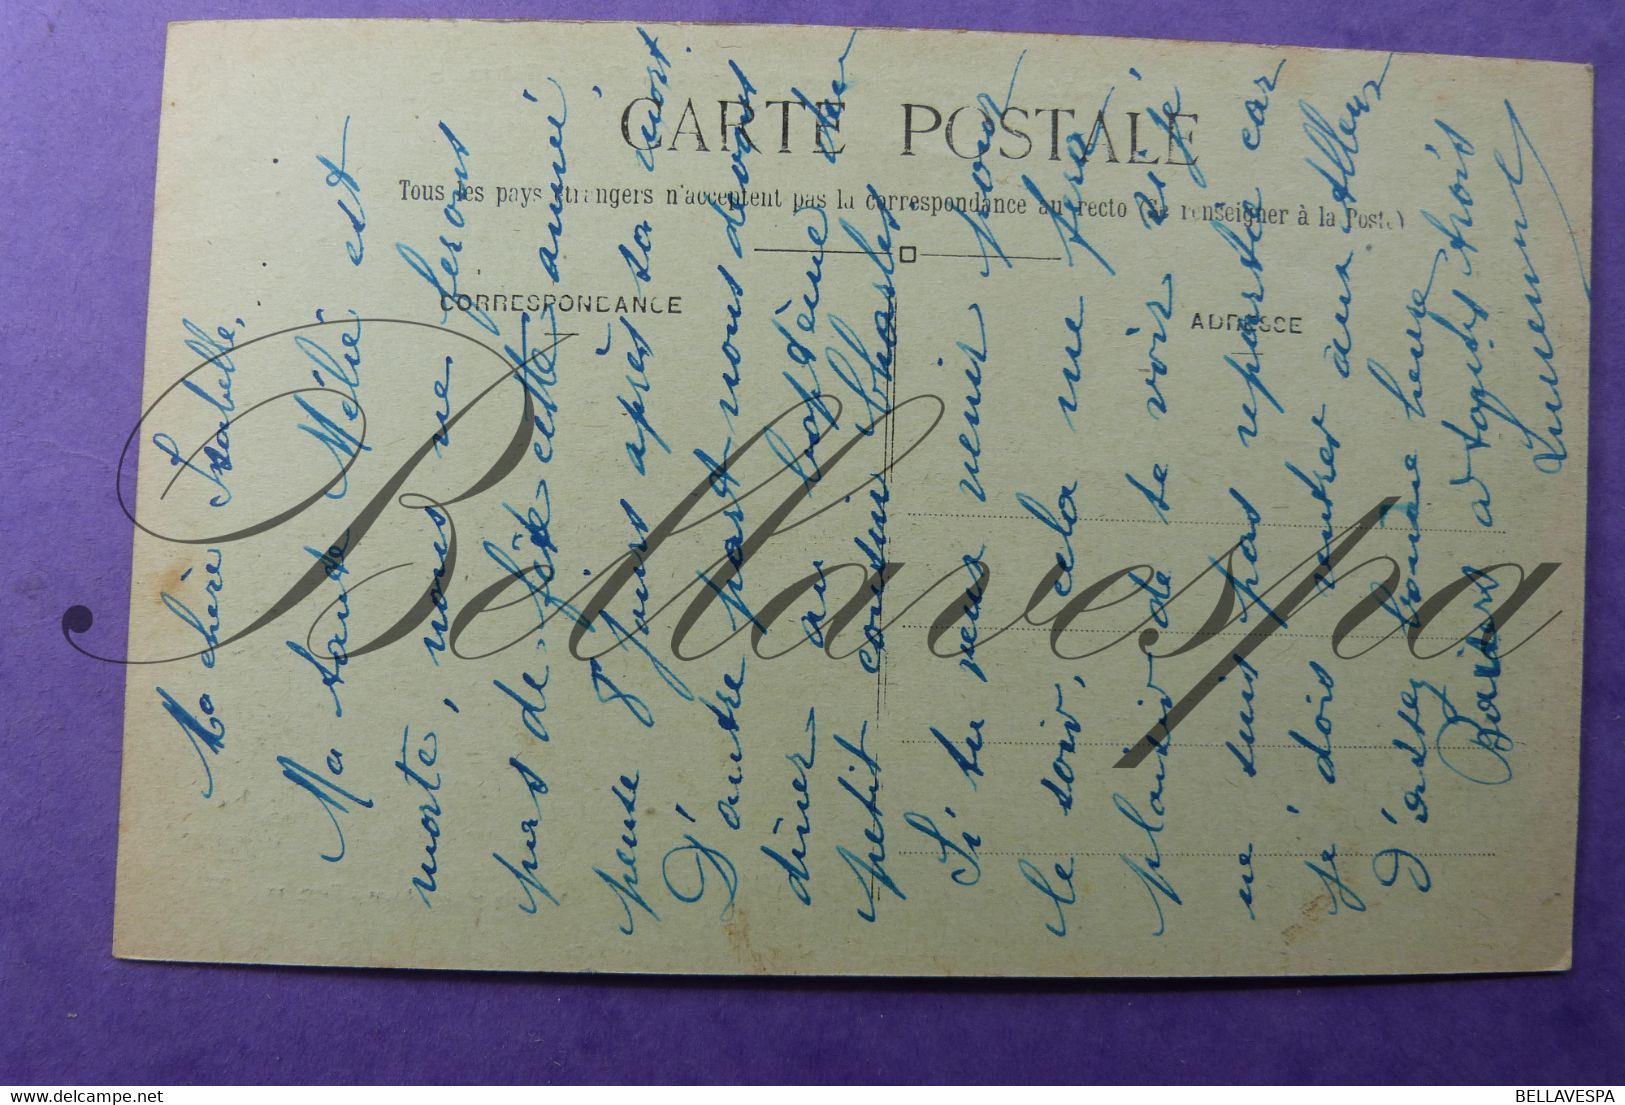 CARTE POSTALE
Tous les pays étrangers n'acceptent pas la correspondance au recto (Se renseigner à la Poste)
CORRESPONDANCE
ADRESSE
Ma chère Isabelle,
Ma tante Mélie est
morte, nous ne ferons
pas de fête cette année
pense 8 jours après sa mort.
D'autre part nous devons
dîner au baptème du
petit cousin Charles.
Si tu peux venir pour
le soir, cela me fera
plaisir de te voir si je
ne suis pas repartie car
je dois rentrer aux
d'assez bonne heure
Baisers à vous trois
Bellavespa
BELLAVESPA